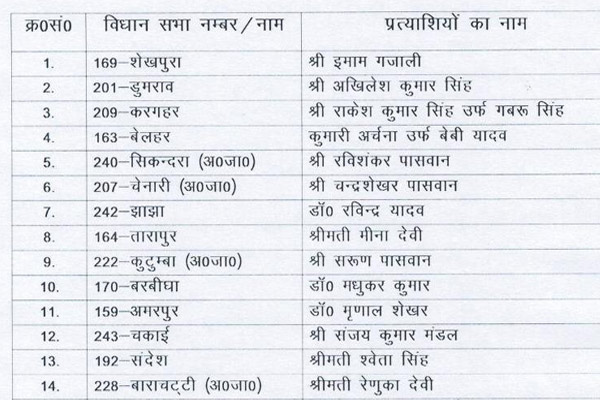 क्र0सं0 विधान सभा नम्बर/नाम प्रत्याशियों का नाम
1. 169–शेखपुरा श्री इमाम गजाली
2. 201–डुमराव श्री अखिलेश कुमार सिंह
3. 209–करगहर श्री राकेश कुमार सिंह उर्फ गबरू सिंह
4. 163–बेलहर कुमारी अर्चना उर्फ बेबी यादव
5. 240–सिकन्दरा (अ0जा0) श्री रविशंकर पासवान
6. 207–चेनारी (अ0जा0) श्री चन्द्रशेखर पासवान
7. 242–झाझा डॉ0 रविन्द्र यादव
8. 164–तारापुर श्रीमती मीना देवी
9. 222–कुटुम्बा (अ0जा0) श्री सरूण पासवान
10. 170–बरबीघा डॉ0 मधुकर कुमार
11. 159–अमरपुर डॉ0 मृणाल शेखर
12. 243–चकाई श्री संजय कुमार मंडल
13. 192–संदेश श्रीमती श्वेता सिंह
14. 228–बाराचट्टी (अ0जा0) श्रीमती रेणुका देवी